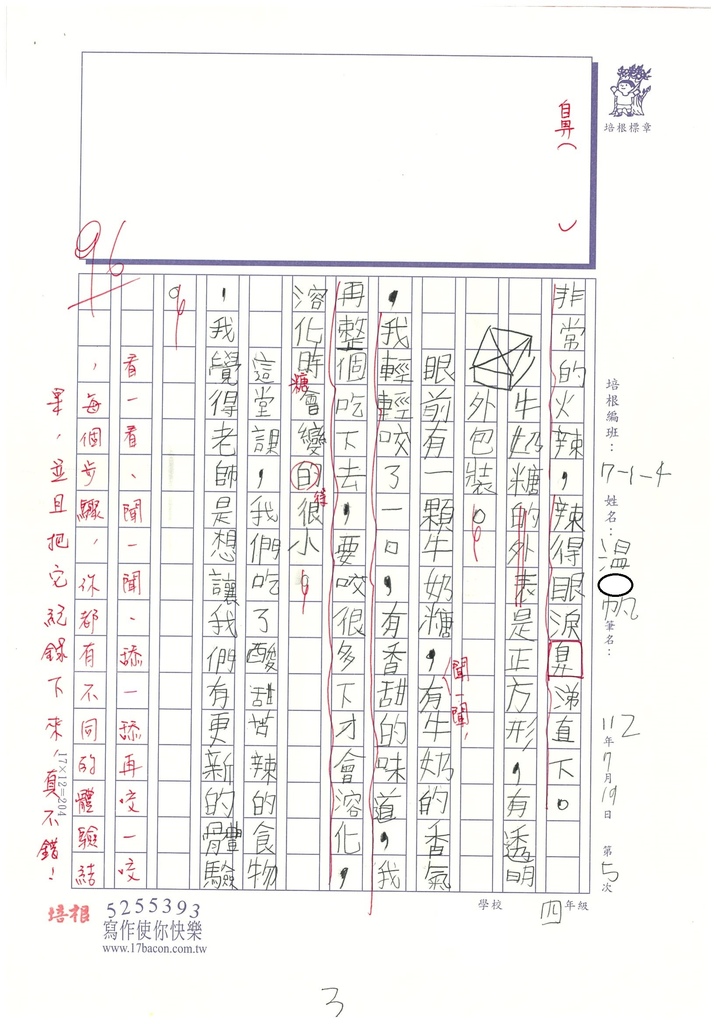 培根標章
鼻
96
培根編班：7-1-4
姓名：溫 帆
筆名：
112年7月19日 第5次
學校 四年級
非常的火辣，辣得眼淚鼻涕直下。
牛奶糖的外表是正方形，有透明
外包裝。
眼前有一顆牛奶糖，有牛奶的香氣
聞一聞，
，我輕輕咬了一口，有香甜的味道，我
再整個吃下去，要咬很多下才會溶化，
溶化時會變的很小。
糖
得
這堂課，我們吃了酸甜苦辣的食物
，我覺得老師是想讓我們有更新的體驗
。
看一看、聞一聞、舔一舔再咬一咬
，每個步驟，你都有不同的體驗結
果，並且把它紀錄下來，真不錯！
17×12=204
培根 5255393
寫作使你快樂
www.17bacon.com.tw
3